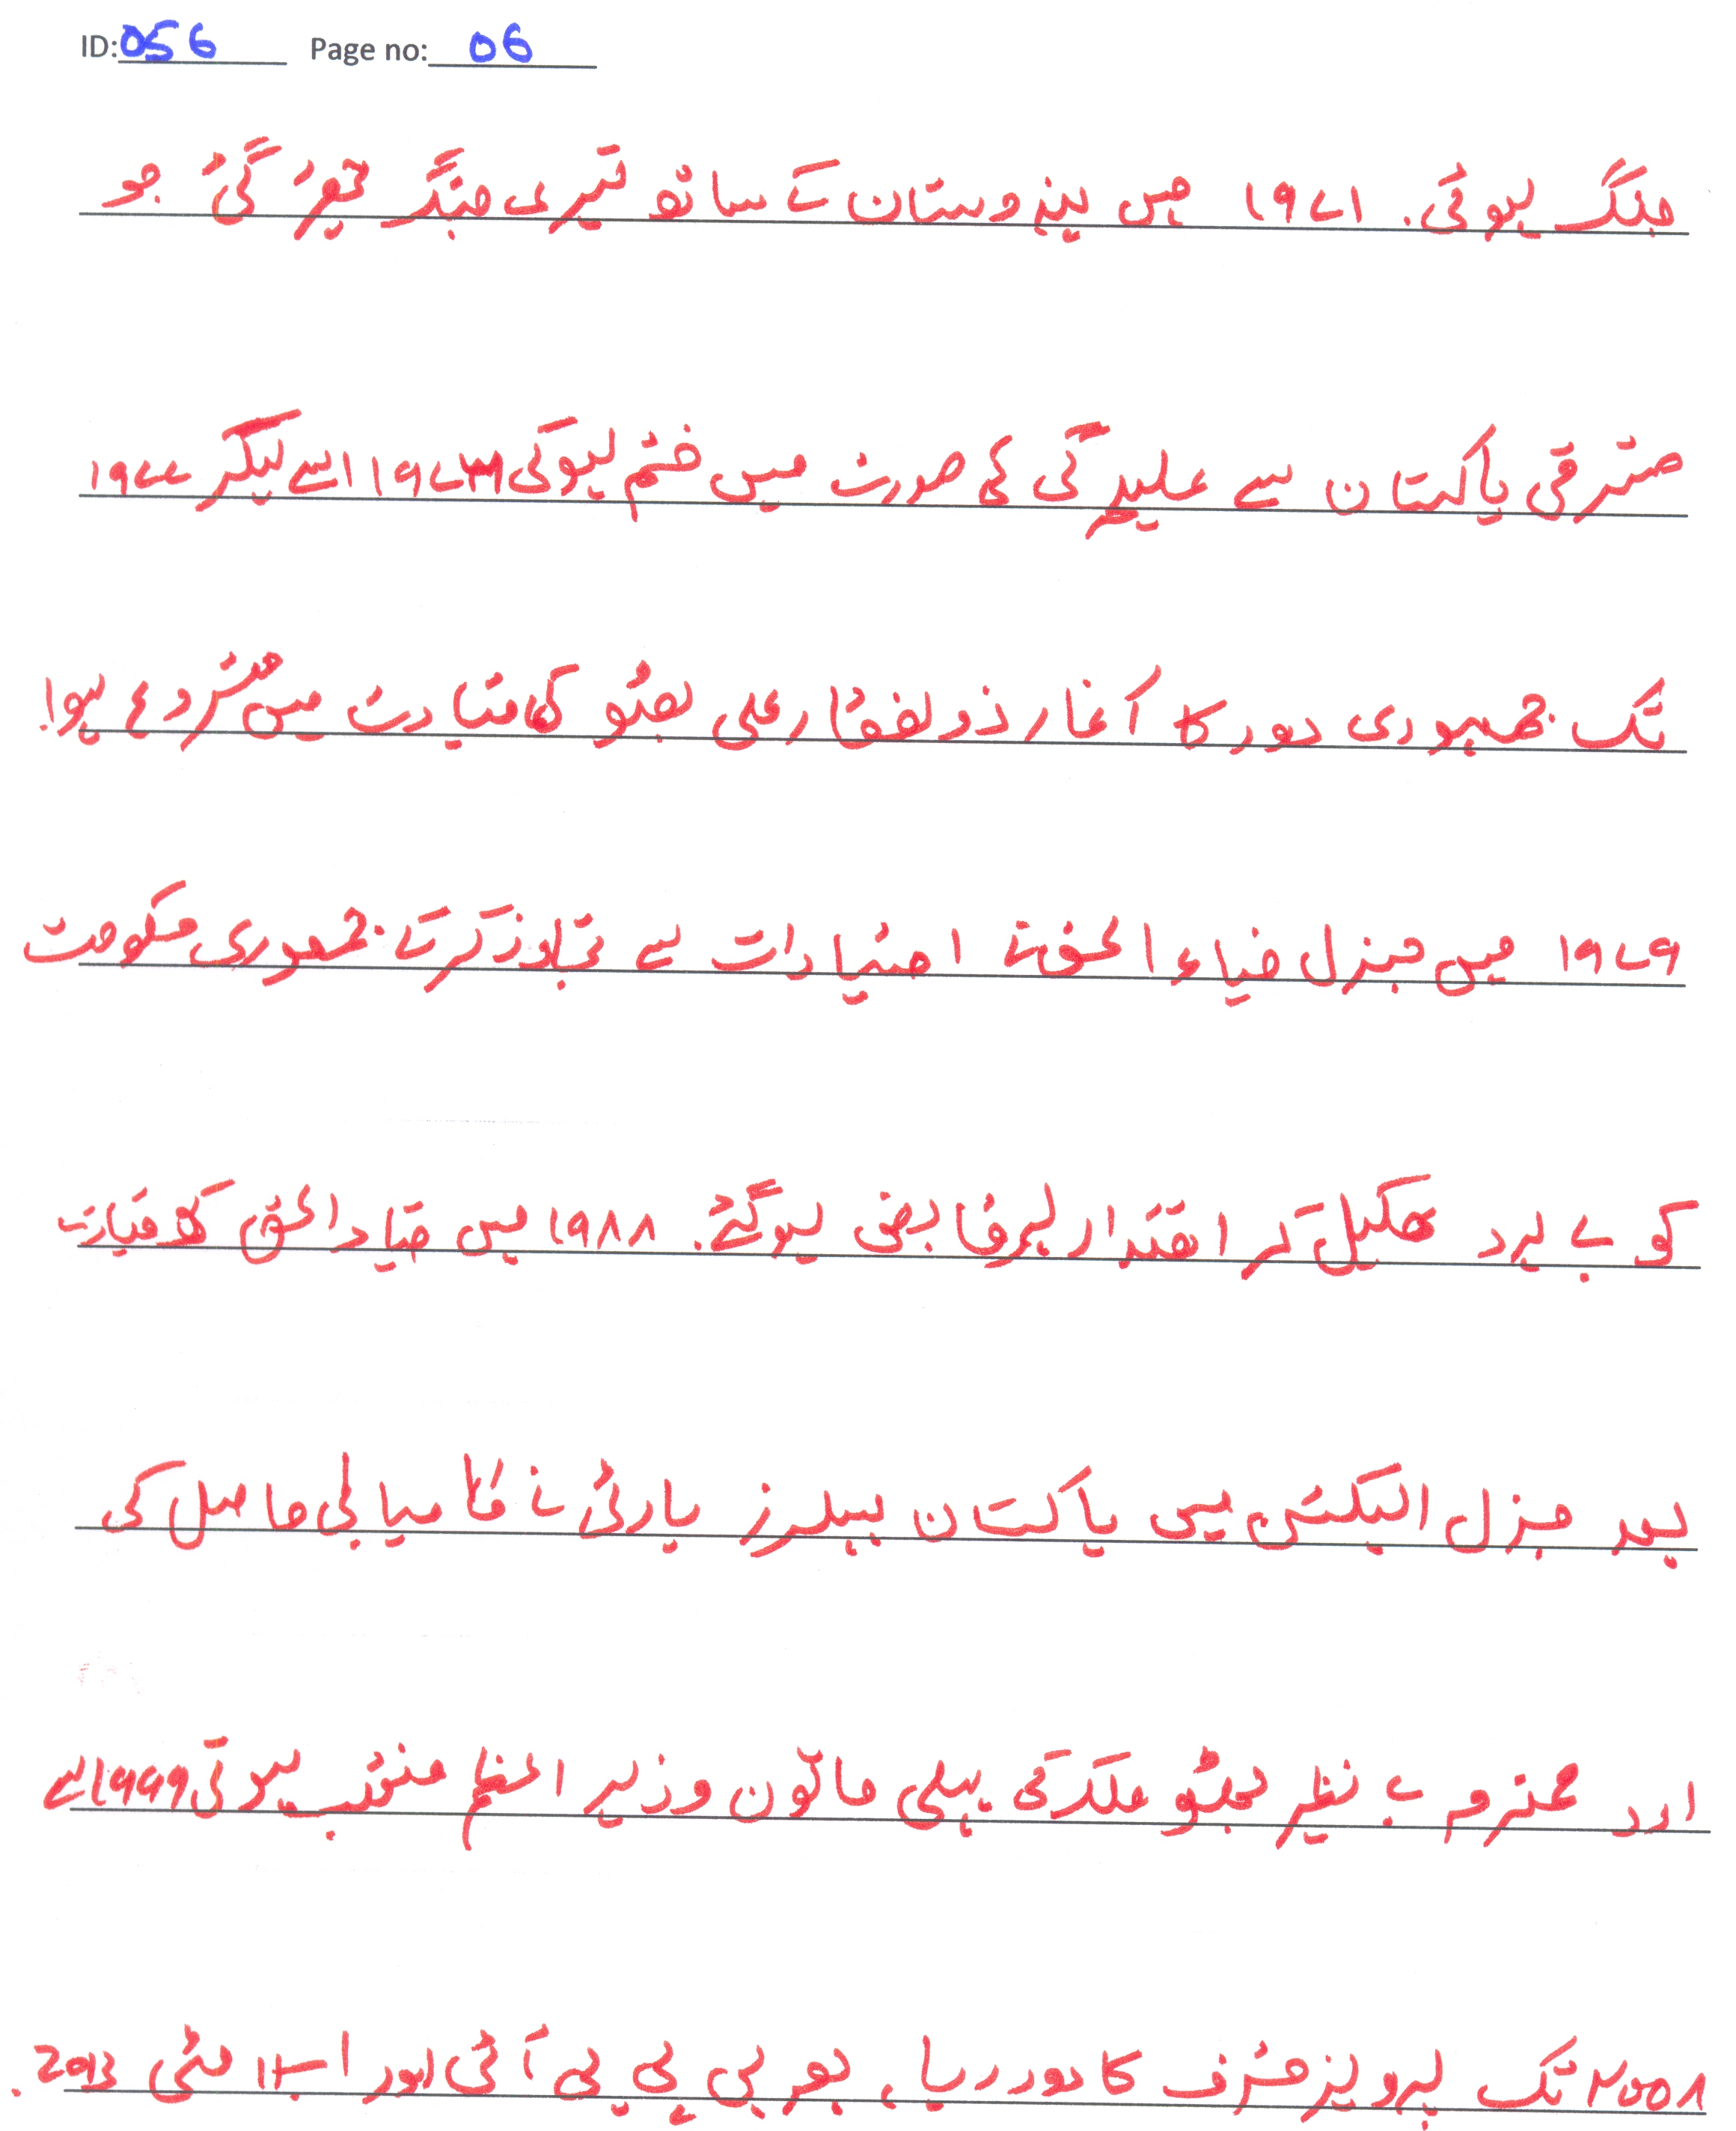 ID: 056 Page no: 06
جنگ ہوئی۔ ۱۹۷۱ میں ہندوستان کے ساتھ تیسری جنگ چھڑ گئی جو
مشرقی پاکستان سے علیحدگی کی صورت میں ختم ہوئی ۱۹۷۳ سے لیکر ۱۹۷۷
تک جمہوری دور کا آغاز ذولفقار علی بھٹو کی قیادت میں شروع ہوا۔
۱۹۷۹ میں جنرل ضیاء الحق نے اختیارات سے تجاوز کرتے جمہوری حکومت
کو بے دھکیل کر اقتدار پر قابض ہوگئے۔ ۱۹۸۸ میں ضیاء الحق کا
بعد جنرل الیکشن میں پاکستان پیپلرز پارٹی نے کامیابی حاصل کی
اور محترمہ بے نظیر بھٹو ملک کی پہلی خاتون وزیر اعظم منتخب ہوئی ۱۹۹۹ سے
۲۰۰۸ تک پرویز مشرف کا دور رہا، پھر پی پی پی آئی اور اب ۱۱ مئی 2013.